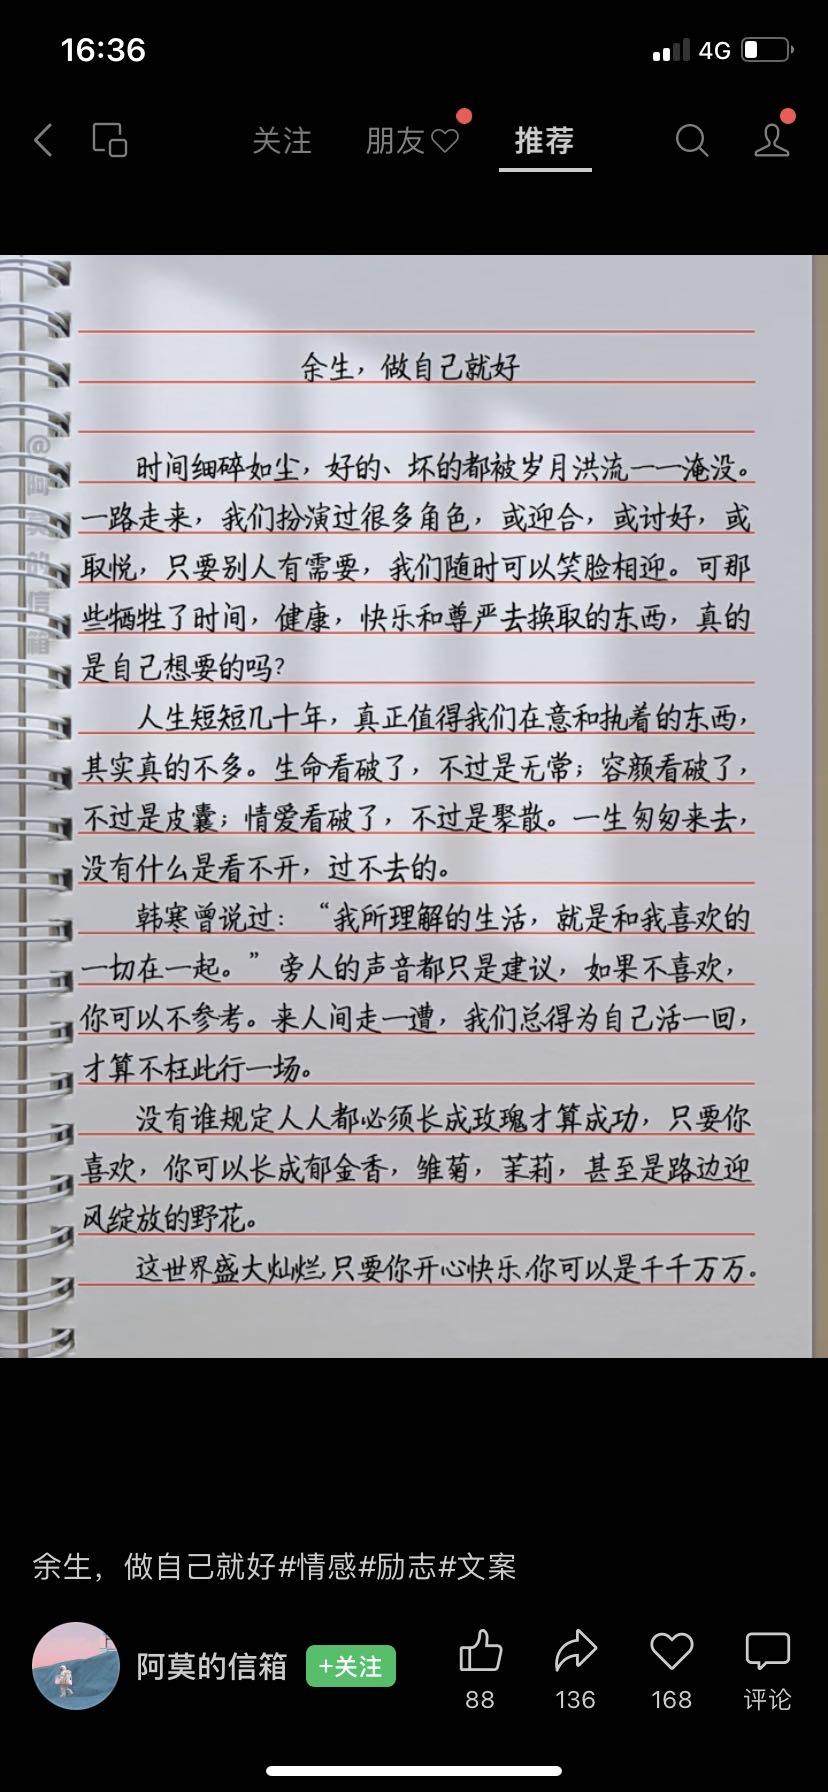 16:36
4G
关注
朋友
推荐
余生，做自己就好
时间细碎如尘，好的、坏的都被岁月洪流一一淹没。
一路走来，我们扮演过很多角色，或迎合，或讨好，或
取悦，只要别人有需要，我们随时可以笑脸相迎。可那
些牺牲了时间，健康，快乐和尊严去换取的东西，真的
是自己想要的吗？
人生短短几十年，真正值得我们在意和执着的东西，
其实真的不多。生命看破了，不过是无常；容颜看破了，
不过是皮囊；情爱看破了，不过是聚散。一生匆匆来去，
没有什么是看不开，过不去的。
韩寒曾说过：“我所理解的生活，就是和我喜欢的
一切在一起。”旁人的声音都只是建议，如果不喜欢，
你可以不参考。来人间走一遭，我们总得为自己活一回，
才算不枉此行一场。
没有谁规定人人都必须长成玫瑰才算成功，只要你
喜欢，你可以长成郁金香，雏菊，茉莉，甚至是路边迎
风绽放的野花。
这世界盛大灿烂，只要你开心快乐，你可以是千千万万。
@阿莫的信箱
余生，做自己就好#情感#励志#文案
阿莫的信箱
+关注
88
136
168
评论